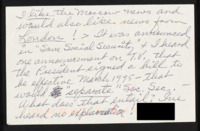 I like the Moscow news and
would also like news from
London! > It was announced
in "Save Social Security," & I heard
one announcement on T.V. that
the President signed a bill to
be effective March 1995 - that
would separate "Soc. Sec."
What does that entail? I've
heard no explanation!